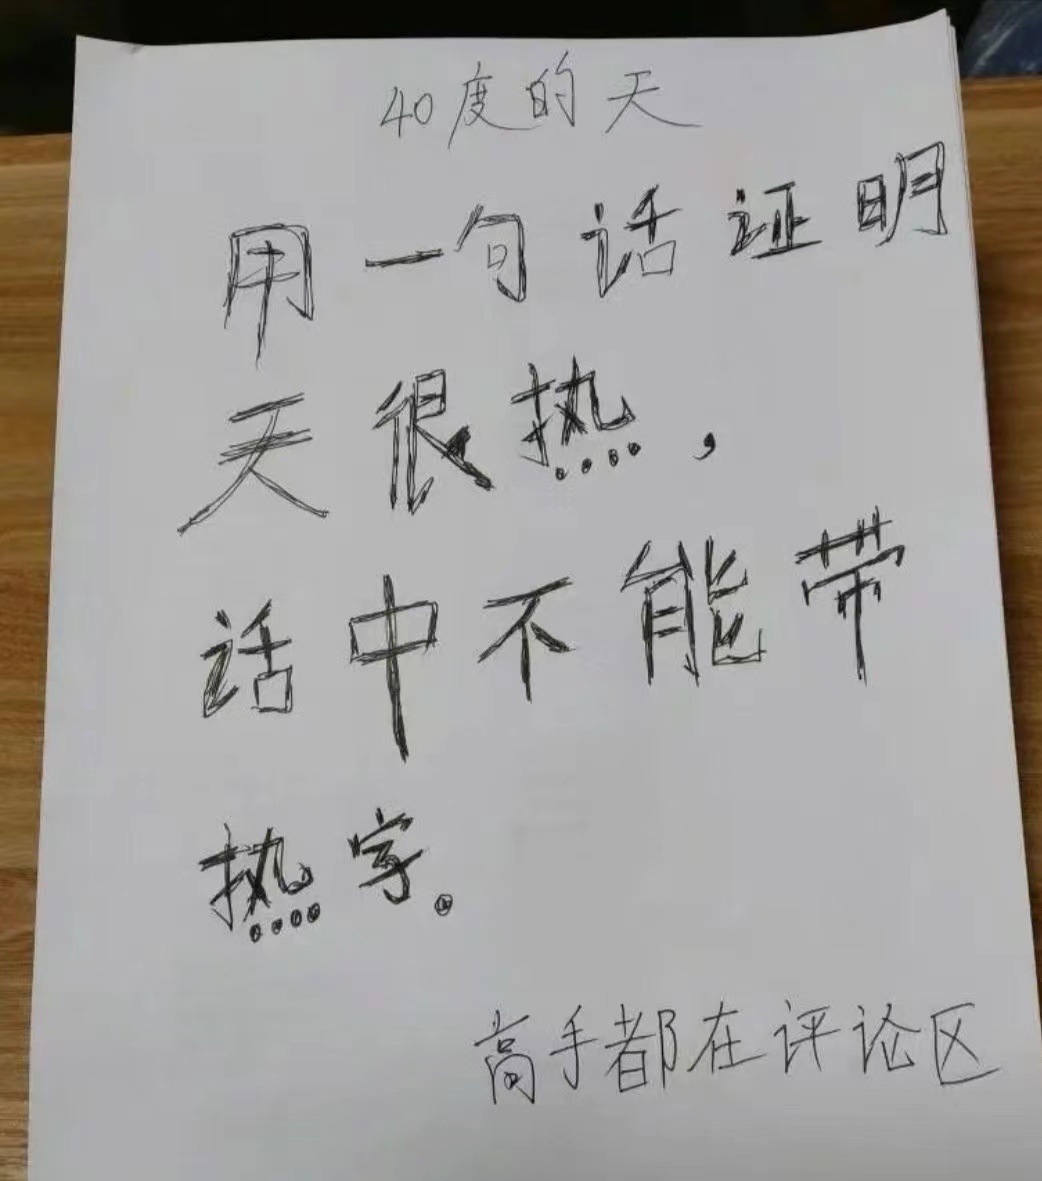 40度的天
用一句话证明
天很热，
话中不能带
热字。
高手都在评论区